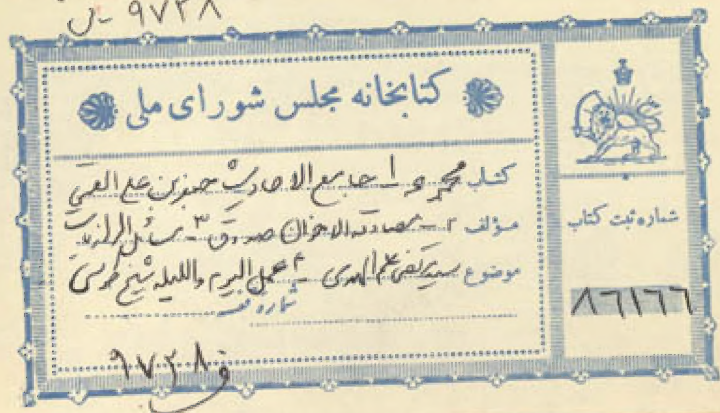 ۹۷۳۸
کتابخانه مجلس شورای ملی
کتاب مجموعه ۱- جامع الاحادیث جعفر بن علی القمی
مؤلف ۲- مصادقة الاخوان صدوق ۳- مسائل الرازیات
موضوع سید مرتضی علم الهدی ۴- عمل الیوم واللیله شیخ طوسی
شماره
شماره ثبت کتاب
۸۶۱۶۶
ف ۹۷۳۰۸